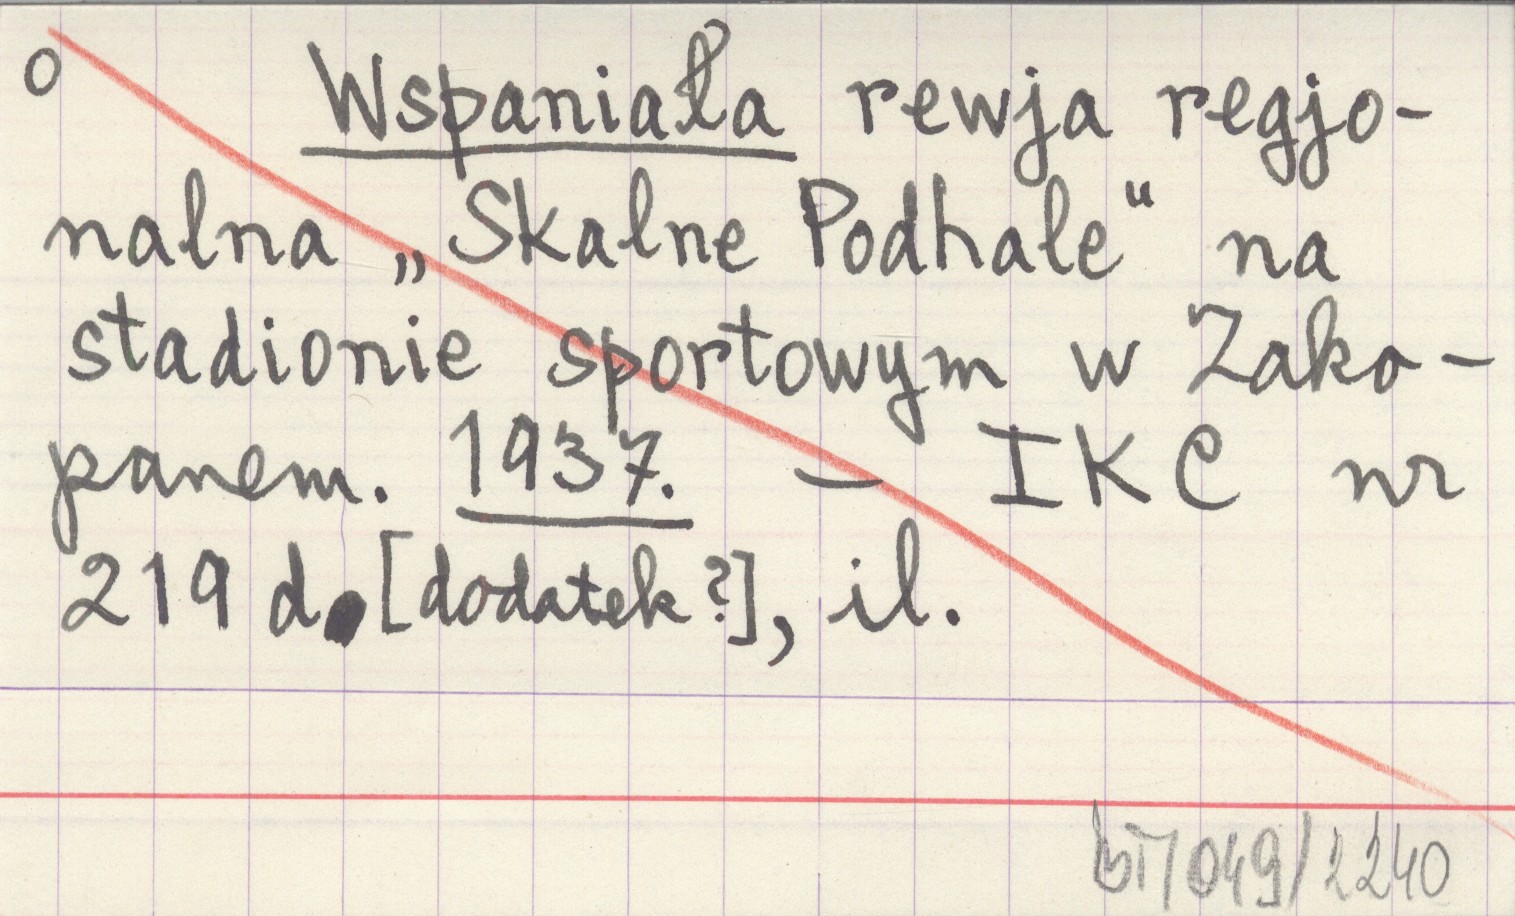 o Wspaniała rewja regjo-
nalna „Skalne Podhale" na
stadionie sportowym w Zako-
panem. 1937. – IKC nr
219 d. [dodatek?], il.
bi/049/2240